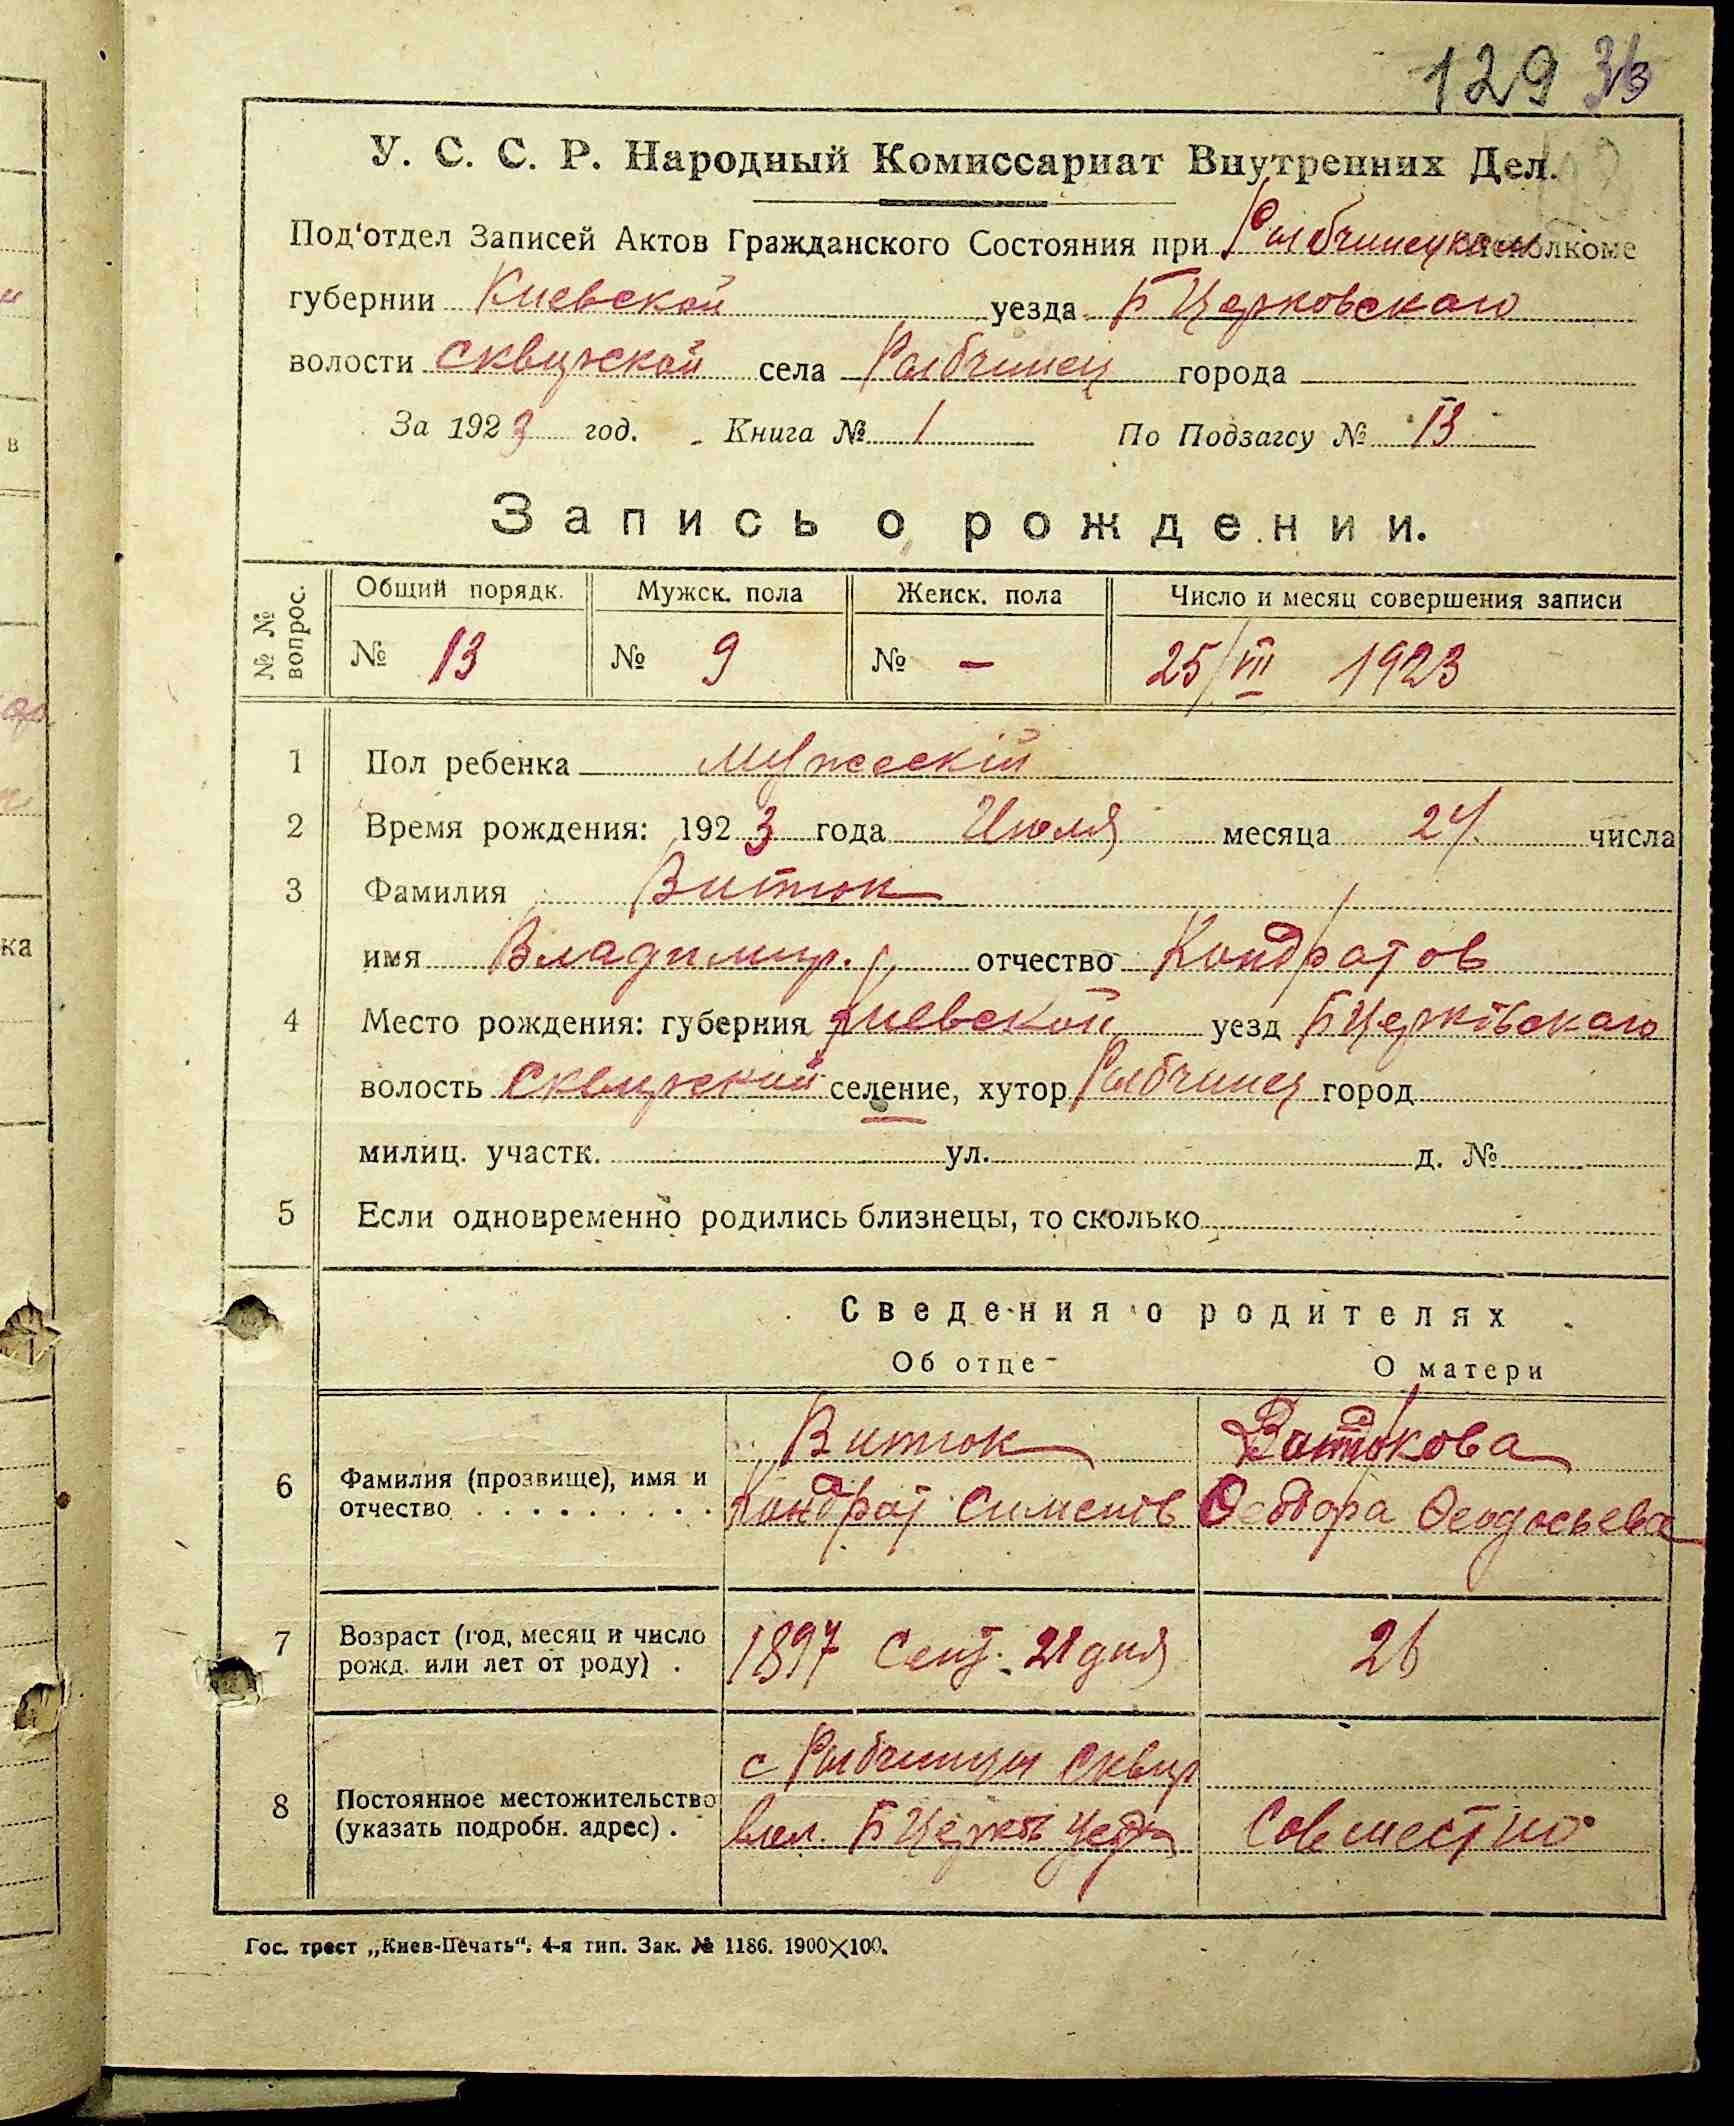 129
У. С. С. Р. Народный Комиссариат Внутренних Дел.
Под'отдел Записей Актов Гражданского Состояния при Рыбчинецком исполкоме
губернии Киевской уезда Б Церковскаго
волости Сквирской села Рыбчинец города
За 1923 год. Книга № 1 По Подзагсу № 13
Запись о рождении.
№ № вопрос.
Общий порядк. Мужск. пола Женск. пола Число и месяц совершения записи
№ 13 № 9 № — 25/VII 1923
1 Пол ребенка мужескій
2 Время рождения: 1923 года Июля месяца 24 числа
3 Фамилия Витюк
имя Владимир. отчество Кондратов
4 Место рождения: губерния Киевской уезд БЦерковскаго
волость Сквирской селение, хутор Рыбчинец город
милиц. участк. ул. д. №
5 Если одновременно родились близнецы, то сколько
Сведения о родителях
Об отце О матери
Витюк Витюкова
6 Фамилия (прозвище), имя и отчество Кондрат Сименов Феодора Феодосьева
7 Возраст (год, месяц и число рожд. или лет от роду) 1897 Сент. 21 дня 26
с Рыбчинцы Сквир
8 Постоянное местожительство (указать подробн. адрес) вол. Б Церков уезда Совместно
Гос. трест „Киев-Печать“. 4-я тип. Зак. № 1186. 1900×100.